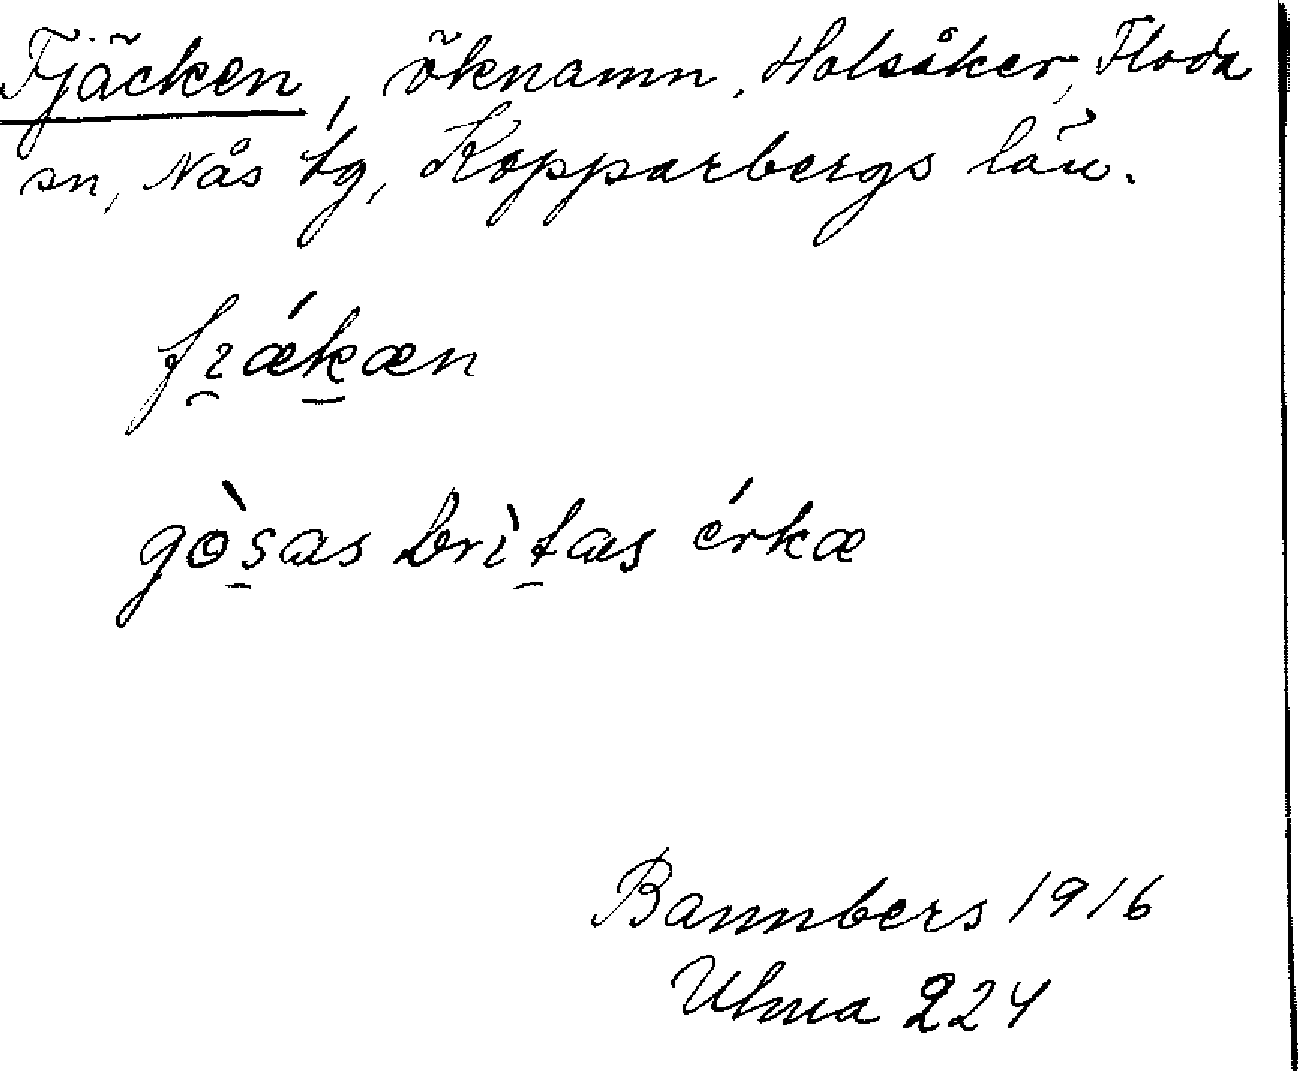 Fjäcken, öknamn, Holsåker, Floda
sn, Nås tg, Kopparbergs län.
gòsas brìtas érkæ
Bannbers 1916
Ulma 224